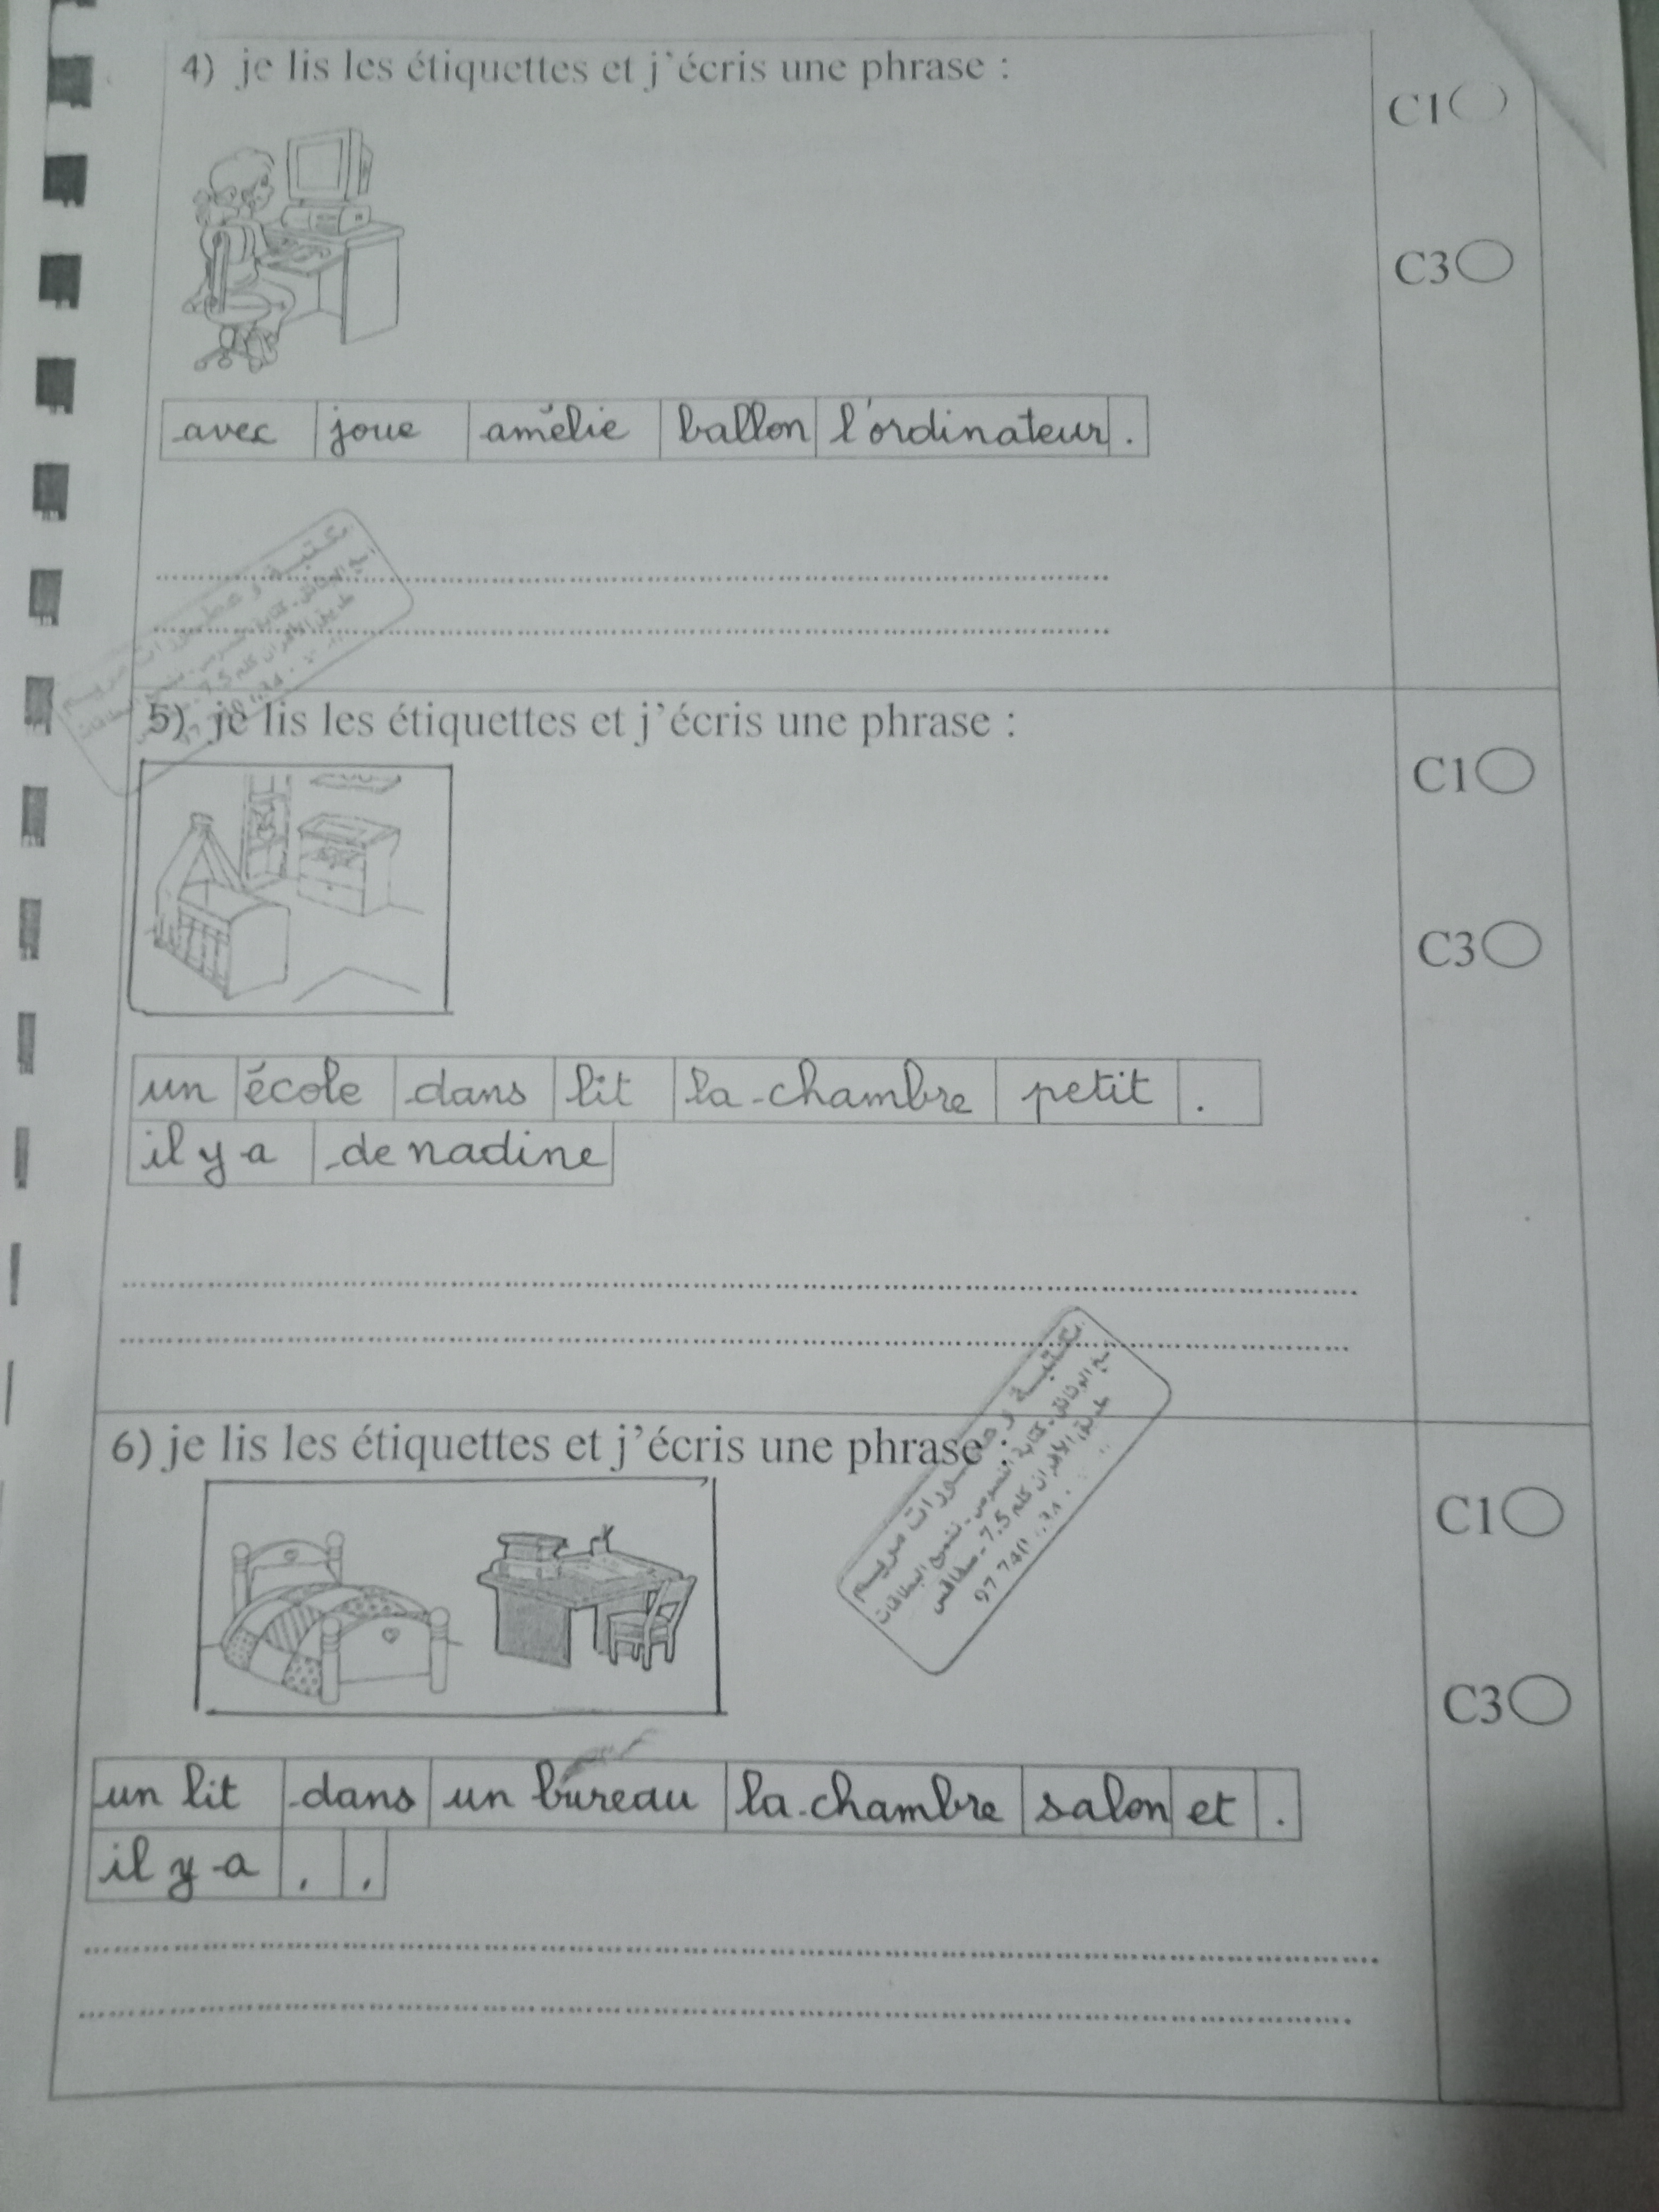 4) je lis les étiquettes et j'écris une phrase :
C1
C3
avec joue amélie ballon l'ordinateur .
5) je lis les étiquettes et j'écris une phrase :
C1
C3
un école dans lit la chambre petit .
il y a de nadine
6) je lis les étiquettes et j'écris une phrase :
C1
C3
un lit dans un bureau la chambre salon et .
il y a , ,